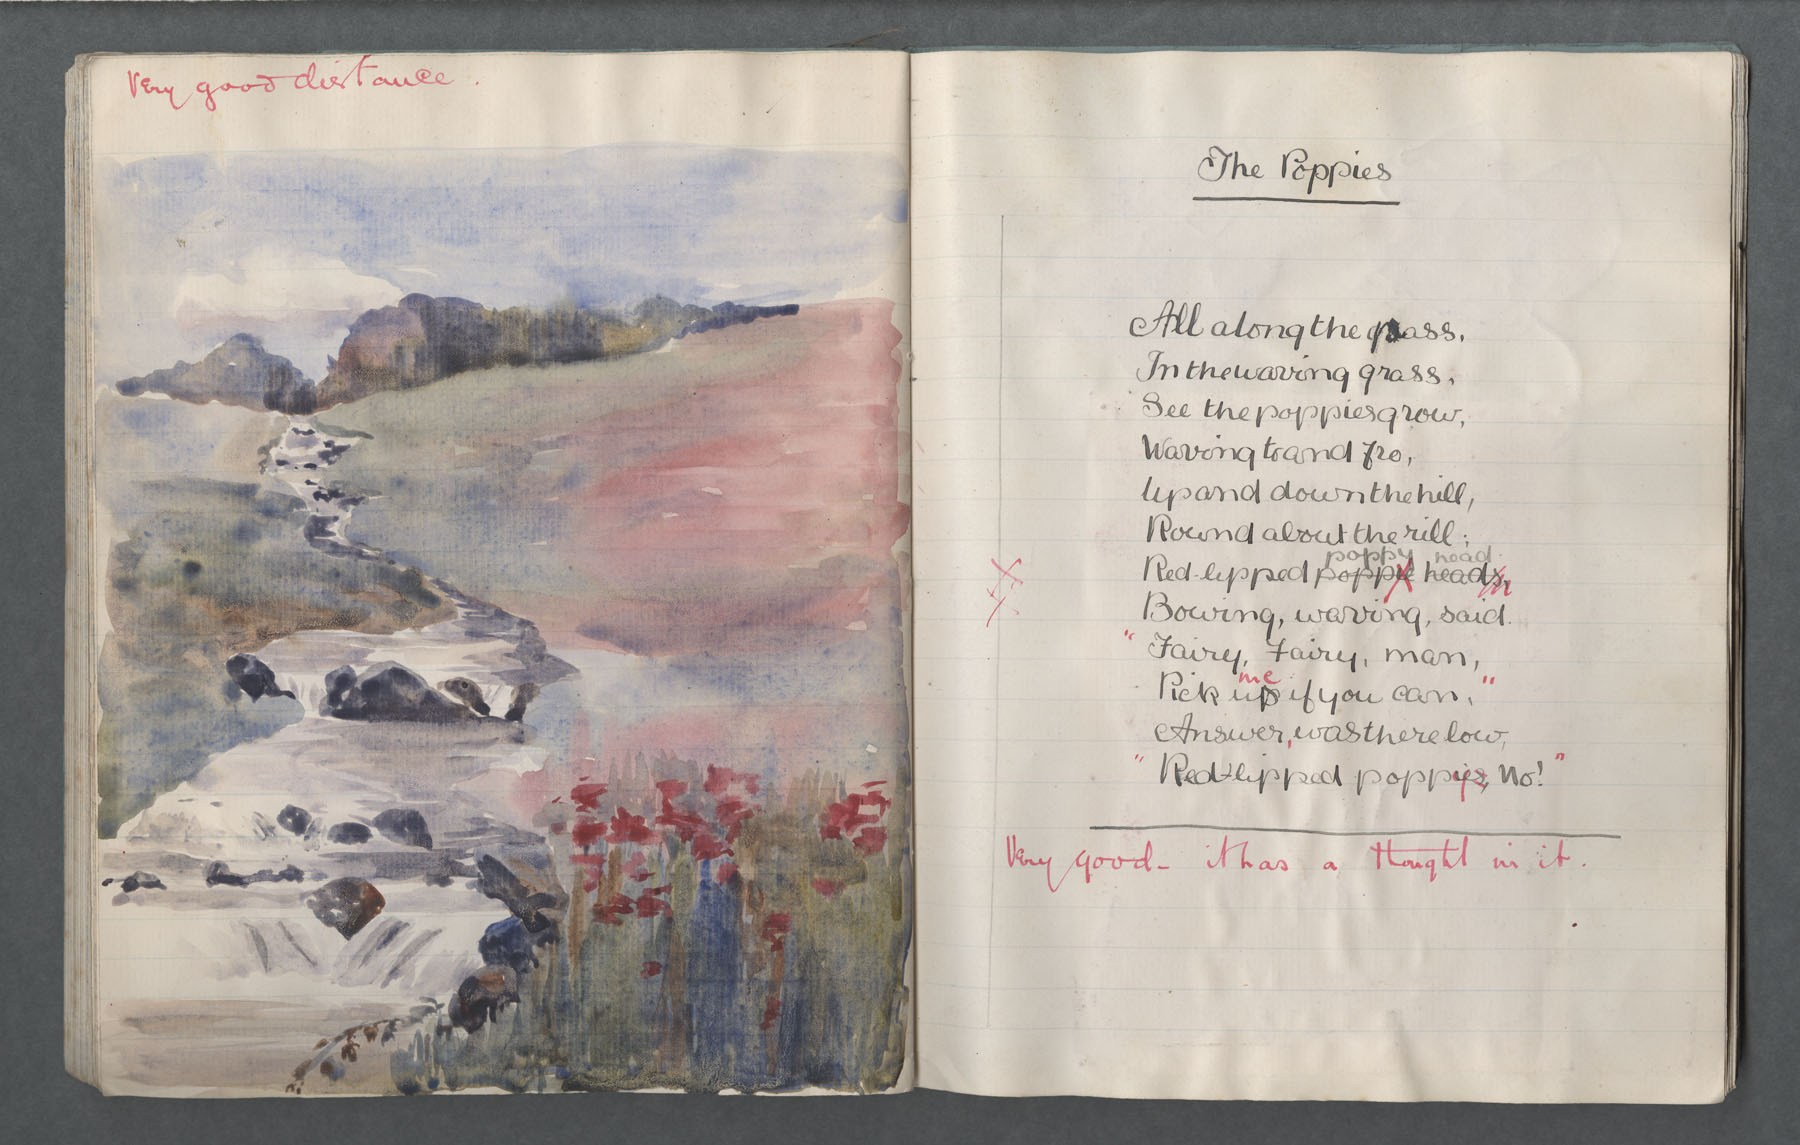 Very good distance.
The Poppies
All along the pass,
In the waving grass,
See the poppies grow,
Waving to and fro,
Up and down the hill,
Round about the rill;
poppy head.
Red-lipped poppie heads,
Bowing, waving, said.
"Fairy, Fairy, man,
me
Pick up if you can,"
Answer, was there low,
"Red-lipped poppies, No!"
Very good - it has a thought in it.